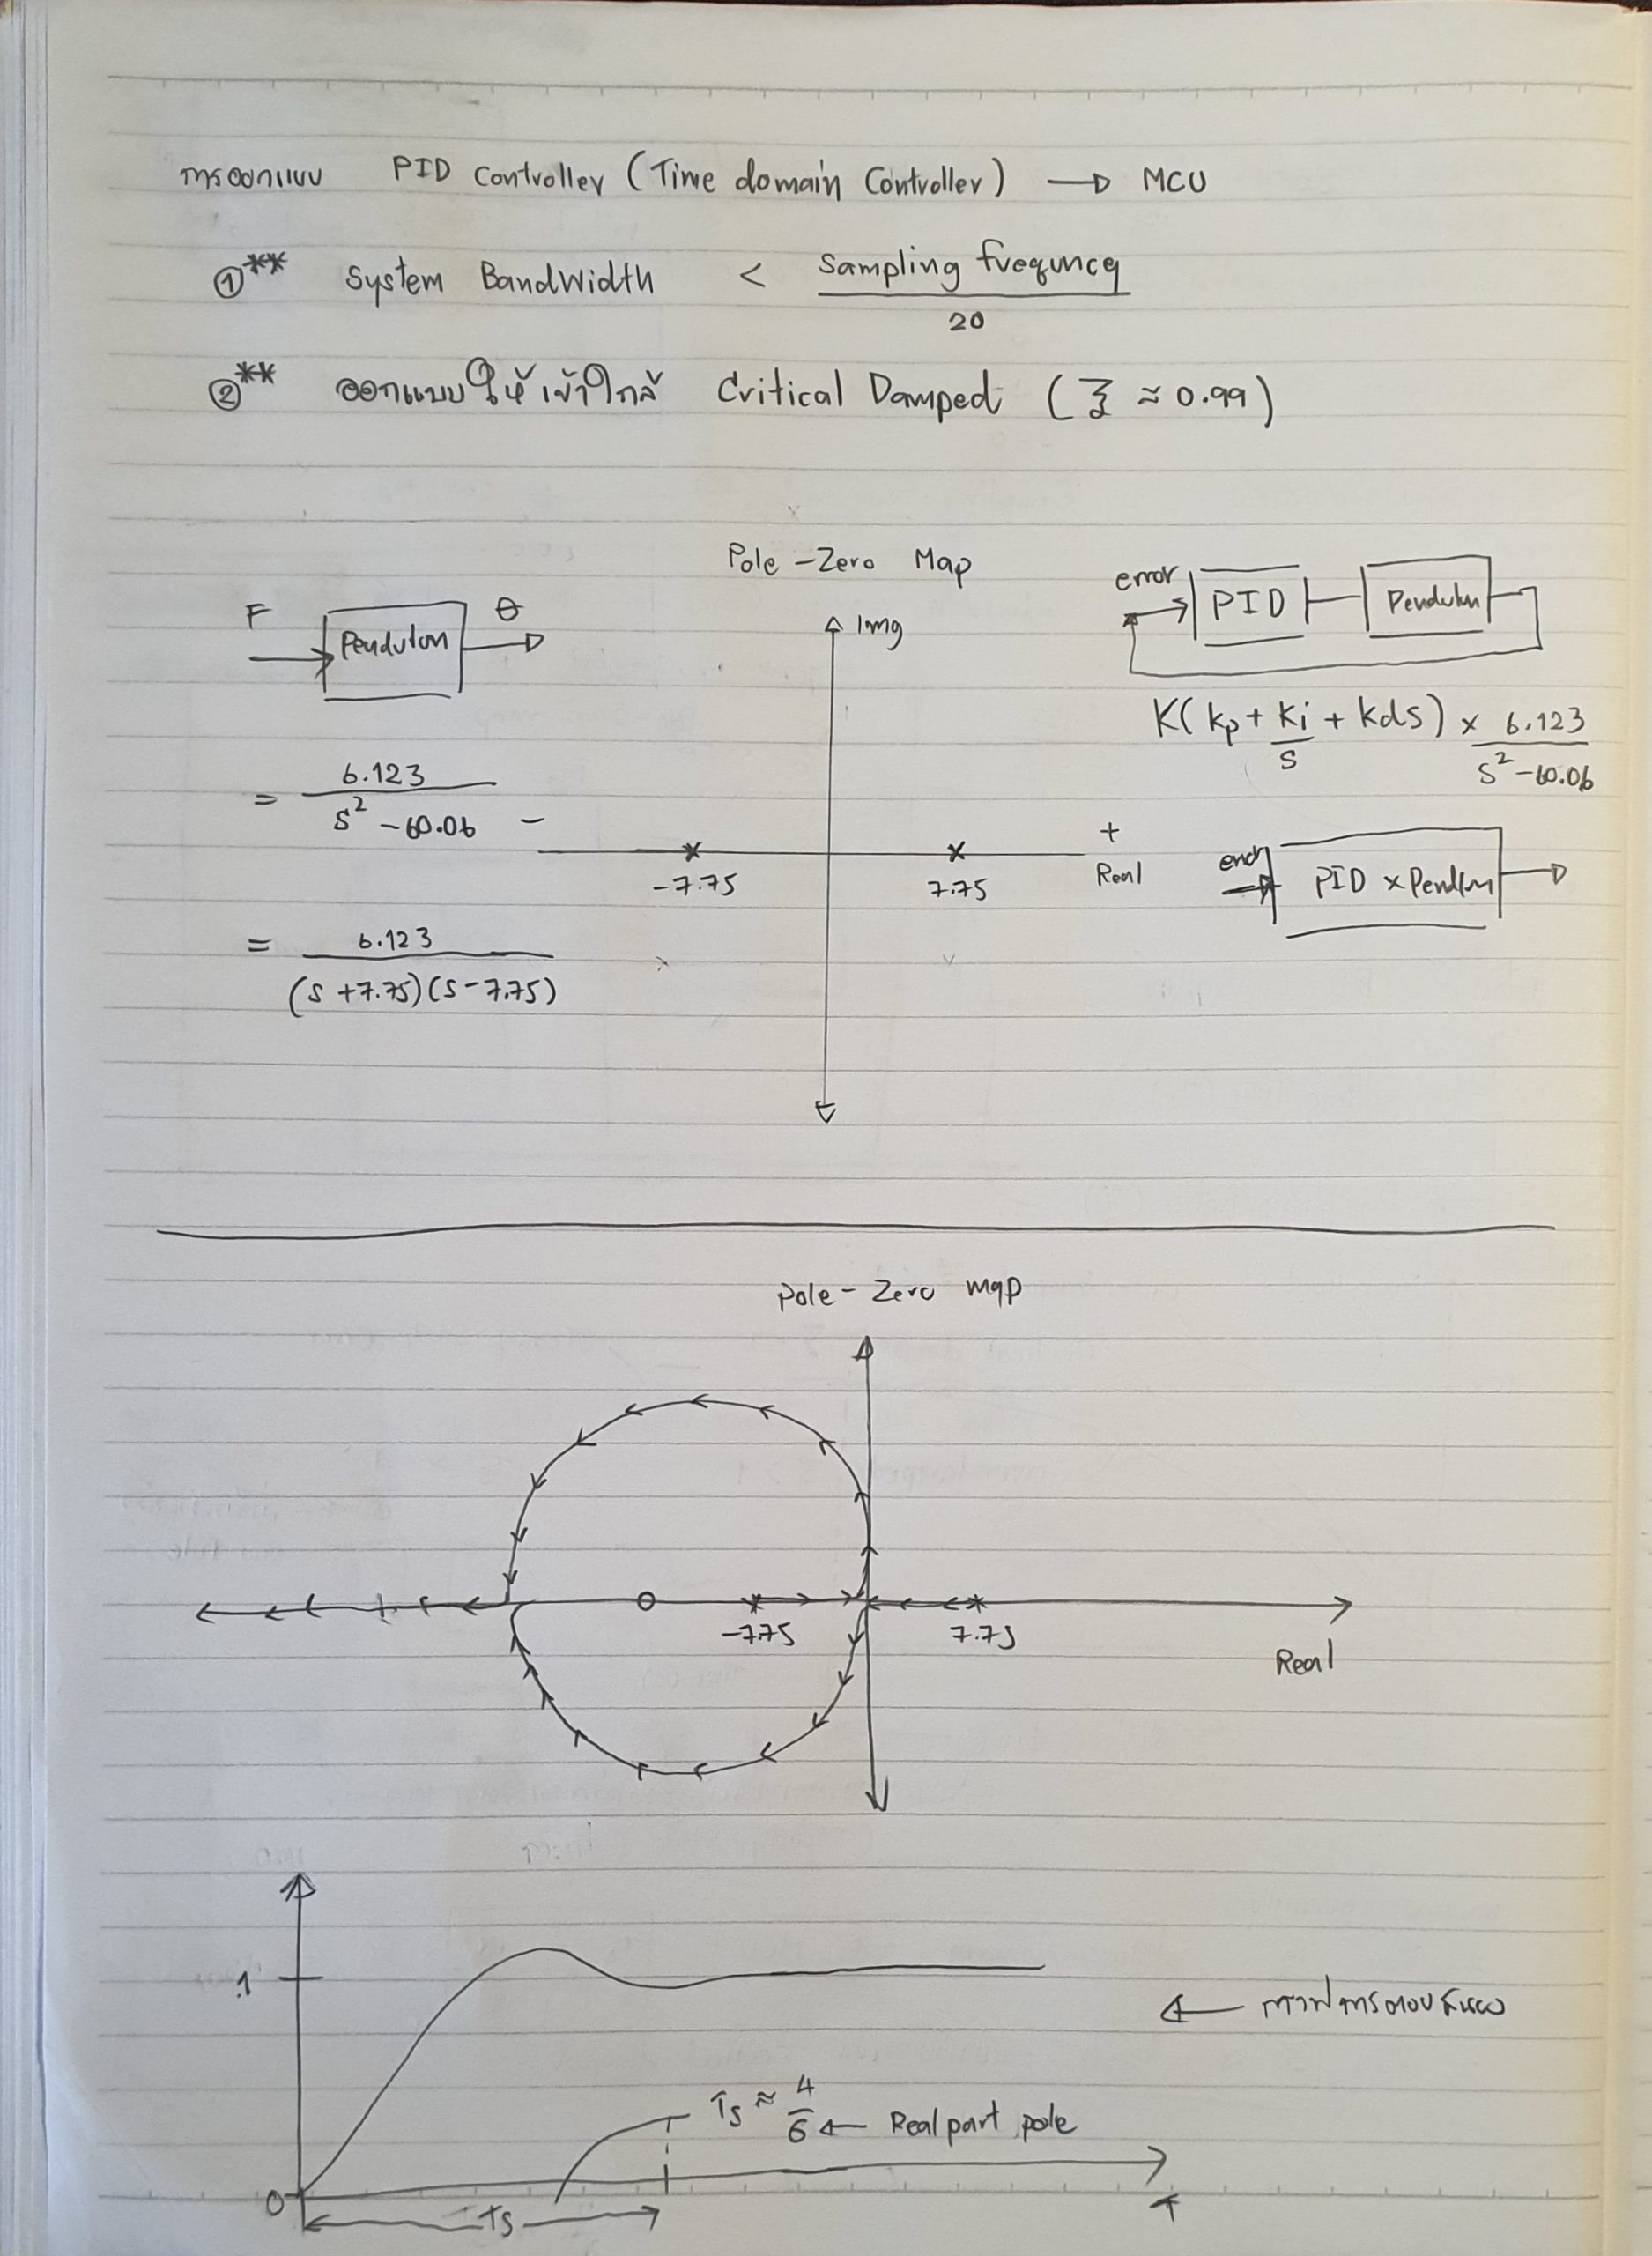 การออกแบบ PID Controller (Time domain Controller) → MCU
①** System Bandwidth < Sampling frequncy / 20
②** ออกแบบให้เข้าใกล้ Critical Damped (ξ ≈ 0.99)
Pole-Zero Map
F Pendulum θ
Img
error PID Pendulum
K(kp + ki/s + kds) × 6.123/(s² - 60.06)
= 6.123/(s² - 60.06)
- +
-7.75 7.75 Real
PID × Pendlum
= 6.123/((s+7.75)(s-7.75))
Pole-Zero map
-7.75 7.75
Real
1
← กราฟการตอบสนอง
Ts ≈ 4/6 ← Real part pole
0
Ts